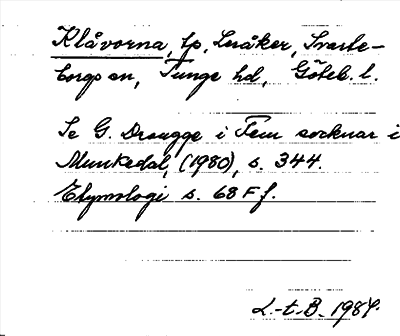 Klåvorna, tp, Småker, Svarte-
borgs sn, Tunge hd, Göteb. l.
Se G. Drougge i Fem socknar i
Munkedal, (1980), s. 344.
Etymologi s. 68 F f.
L.-t. B. 1984.